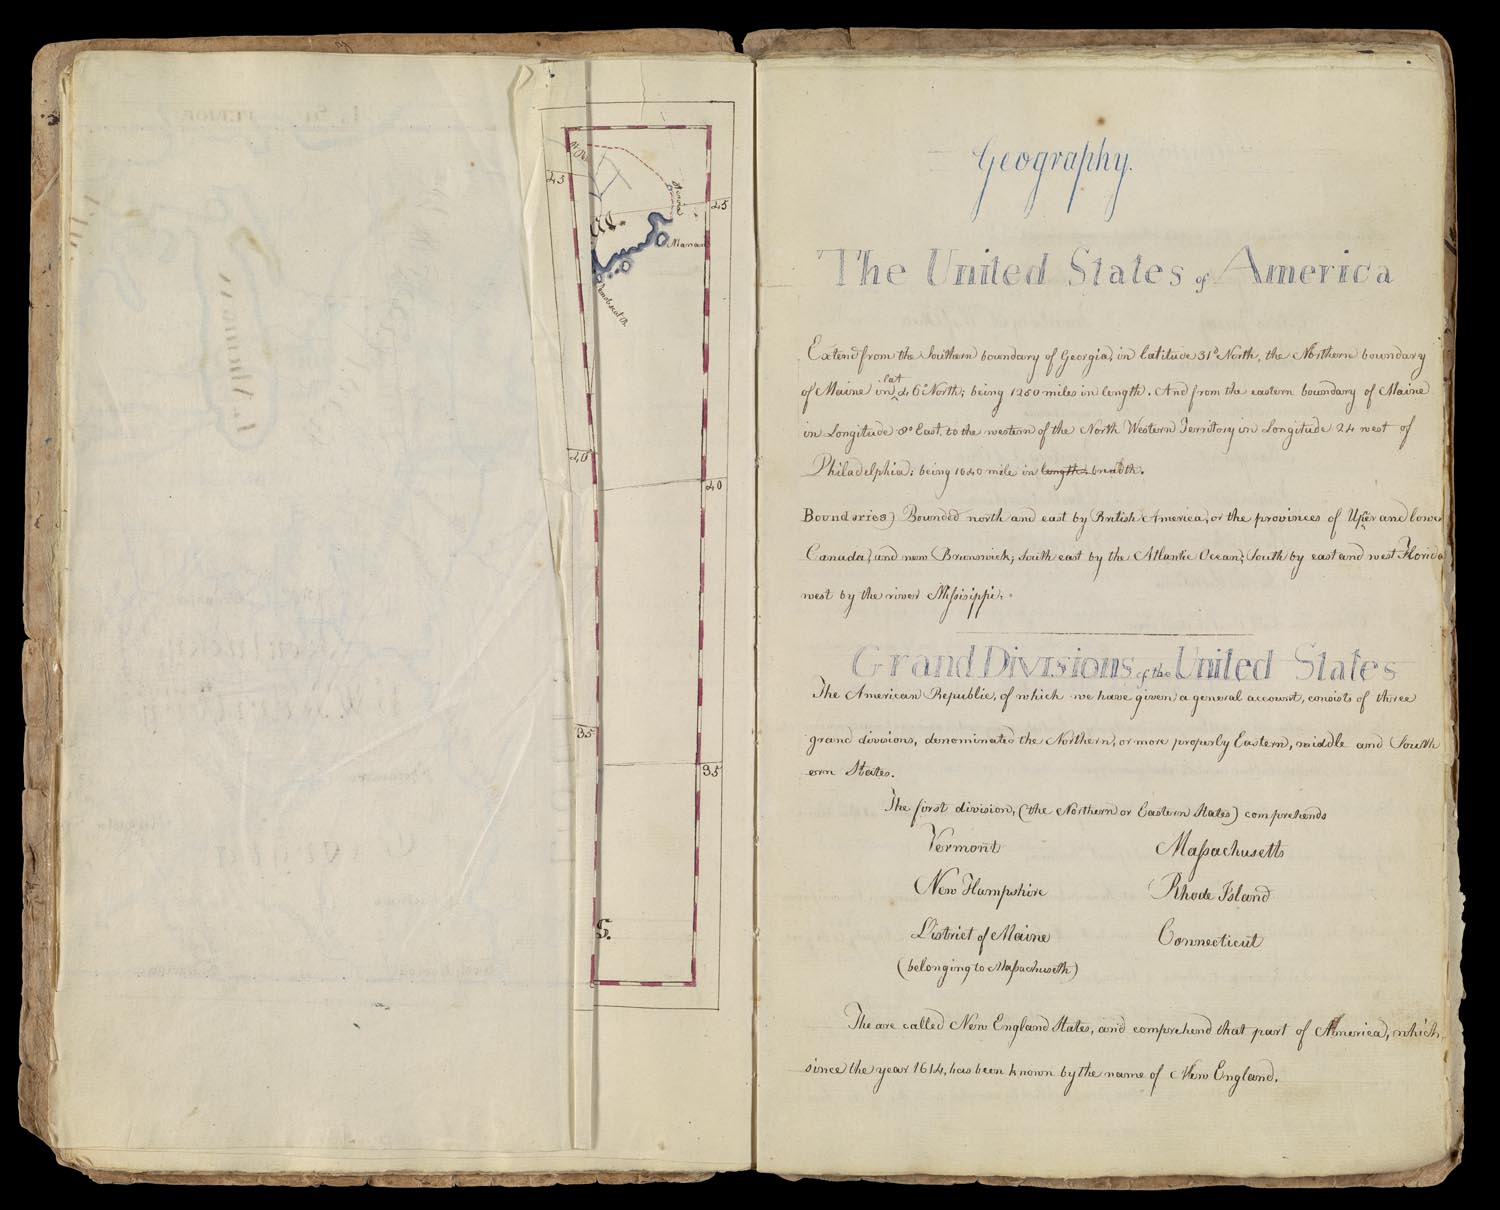 45
45
Manan
Penobscot R
40
40
35
35
S.
Geography.
The United States of America
Extend from the Southern boundary of Georgia, in latitude 31° North, the Northern boundary
of Maine in lat 46° North; being 1250 miles in length. And from the eastern boundary of Maine
in Longitude 8° East, to the western of the North Western Territory in Longitude 24 west of
Philadelphia: being 1040 mile in length breadth.
Boundaries) Bounded north and east by British America, or the provinces of Uper and lower
Canada, and new Brunswick; South east by the Atlantic Ocean; South by east and west Florida
west by the river Missisippi.
Grand Divisions of the United States
The American Republic, of which we have given a general account, consists of three
grand divisions, denominated the Northern, or more properly Eastern, middle and South
ern States.
The first division, (the Northern or Eastern States) comprehends
Vermont Massachusetts
New Hampshire Rhode Island
District of Maine Connecticut
(belonging to Massachusetts)
The are called New England States, and comprehend that part of America, which
since the year 1614, has been known by the name of New England.